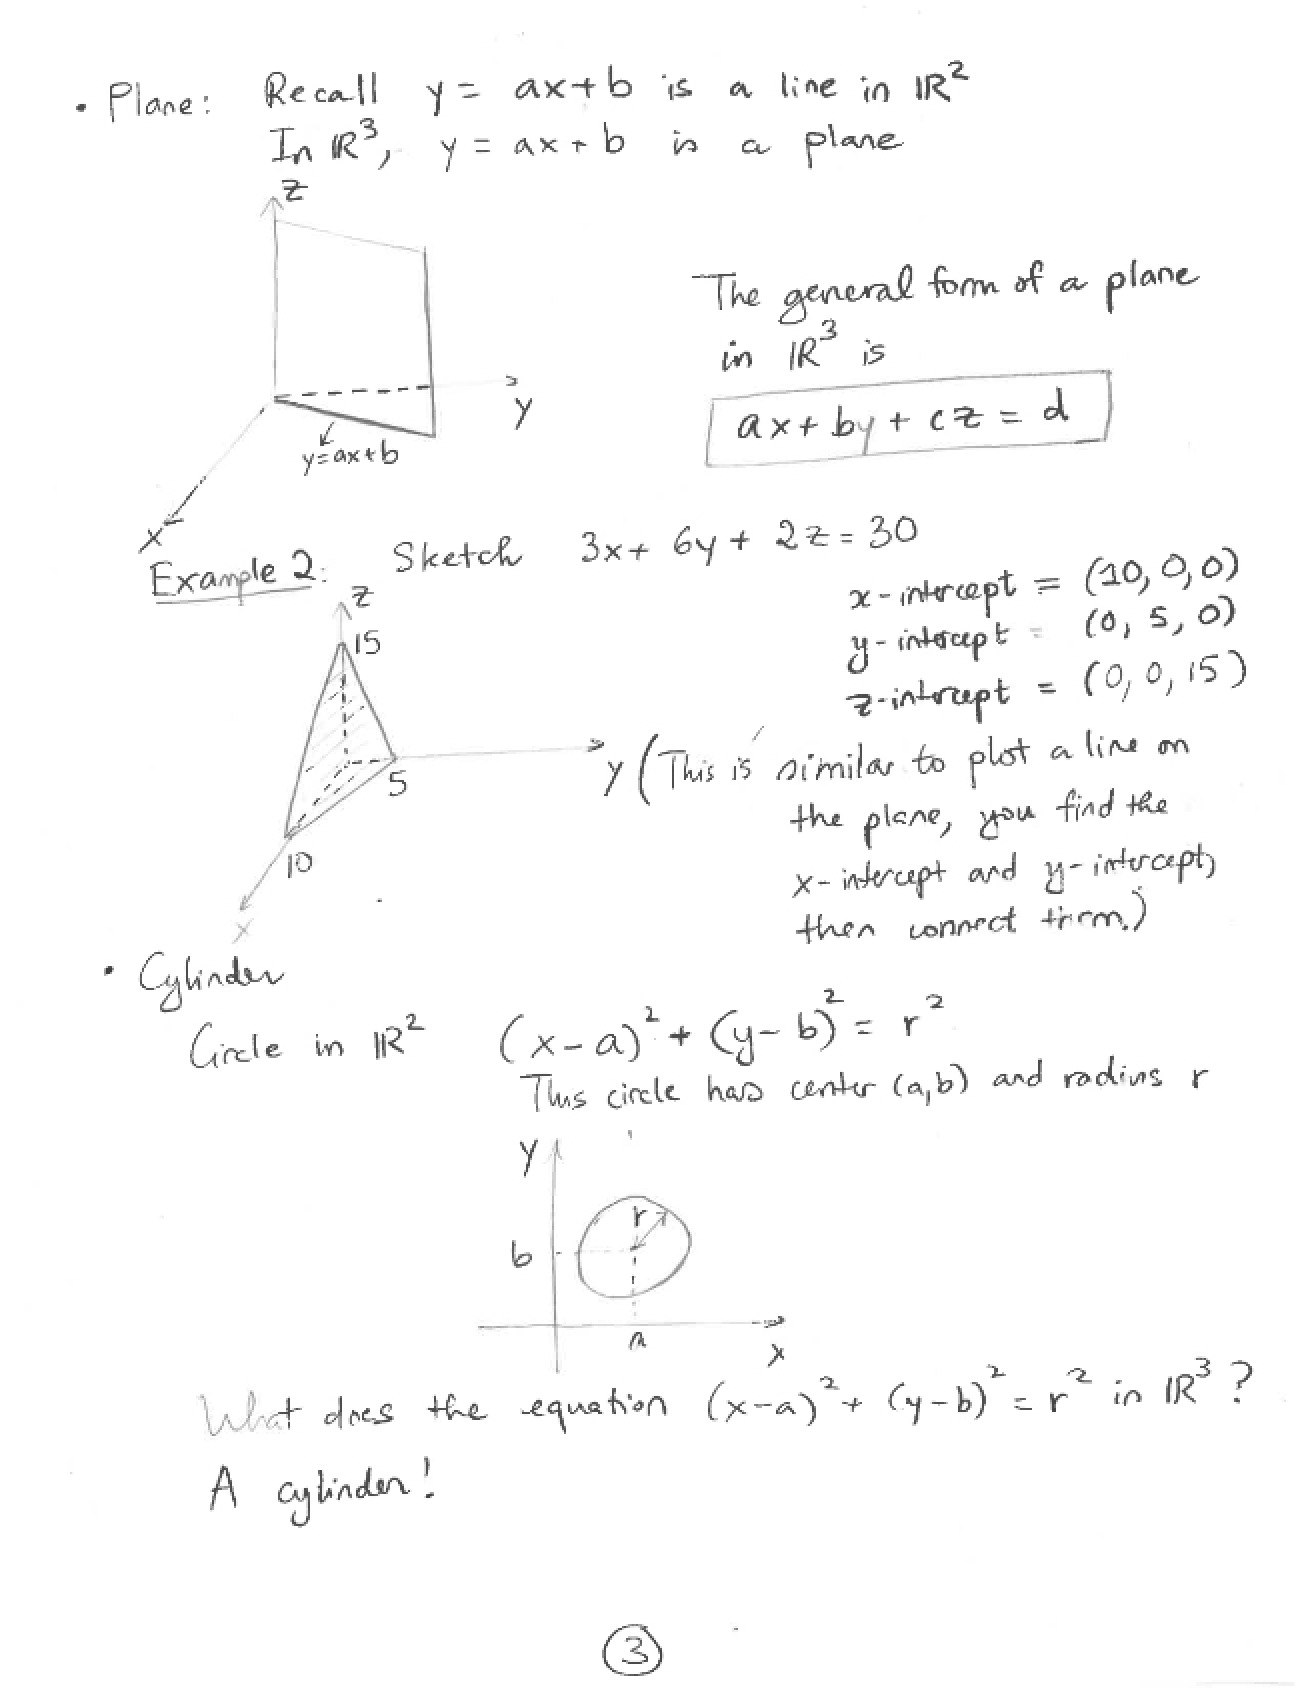 • Plane: Recall y = ax+b is a line in ℝ²
In ℝ³, y = ax+b is a plane
z
The general form of a plane
in ℝ³ is
ax + by + cz = d
y
y=ax+b
x
Example 2: Sketch 3x + 6y + 2z = 30
x-intercept = (10, 0, 0)
y-intercept = (0, 5, 0)
z-intercept = (0, 0, 15)
z
15
y
5
10
x
(This is similar to plot a line on
the plane, you find the
x-intercept and y-intercept,
then connect them.)
• Cylinder
Circle in ℝ² (x-a)² + (y-b)² = r²
This circle has center (a,b) and radius r
y
r
b
a
x
What does the equation (x-a)² + (y-b)² = r² in ℝ³?
A cylinder!
3